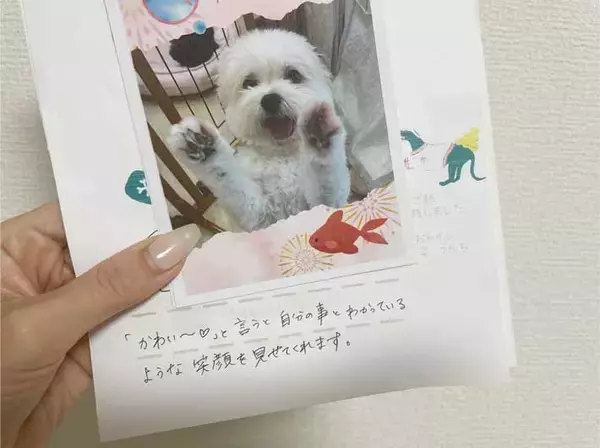 「かわい〜♡」と言うと自分の事とわかっている
ような笑顔を見せてくれます。